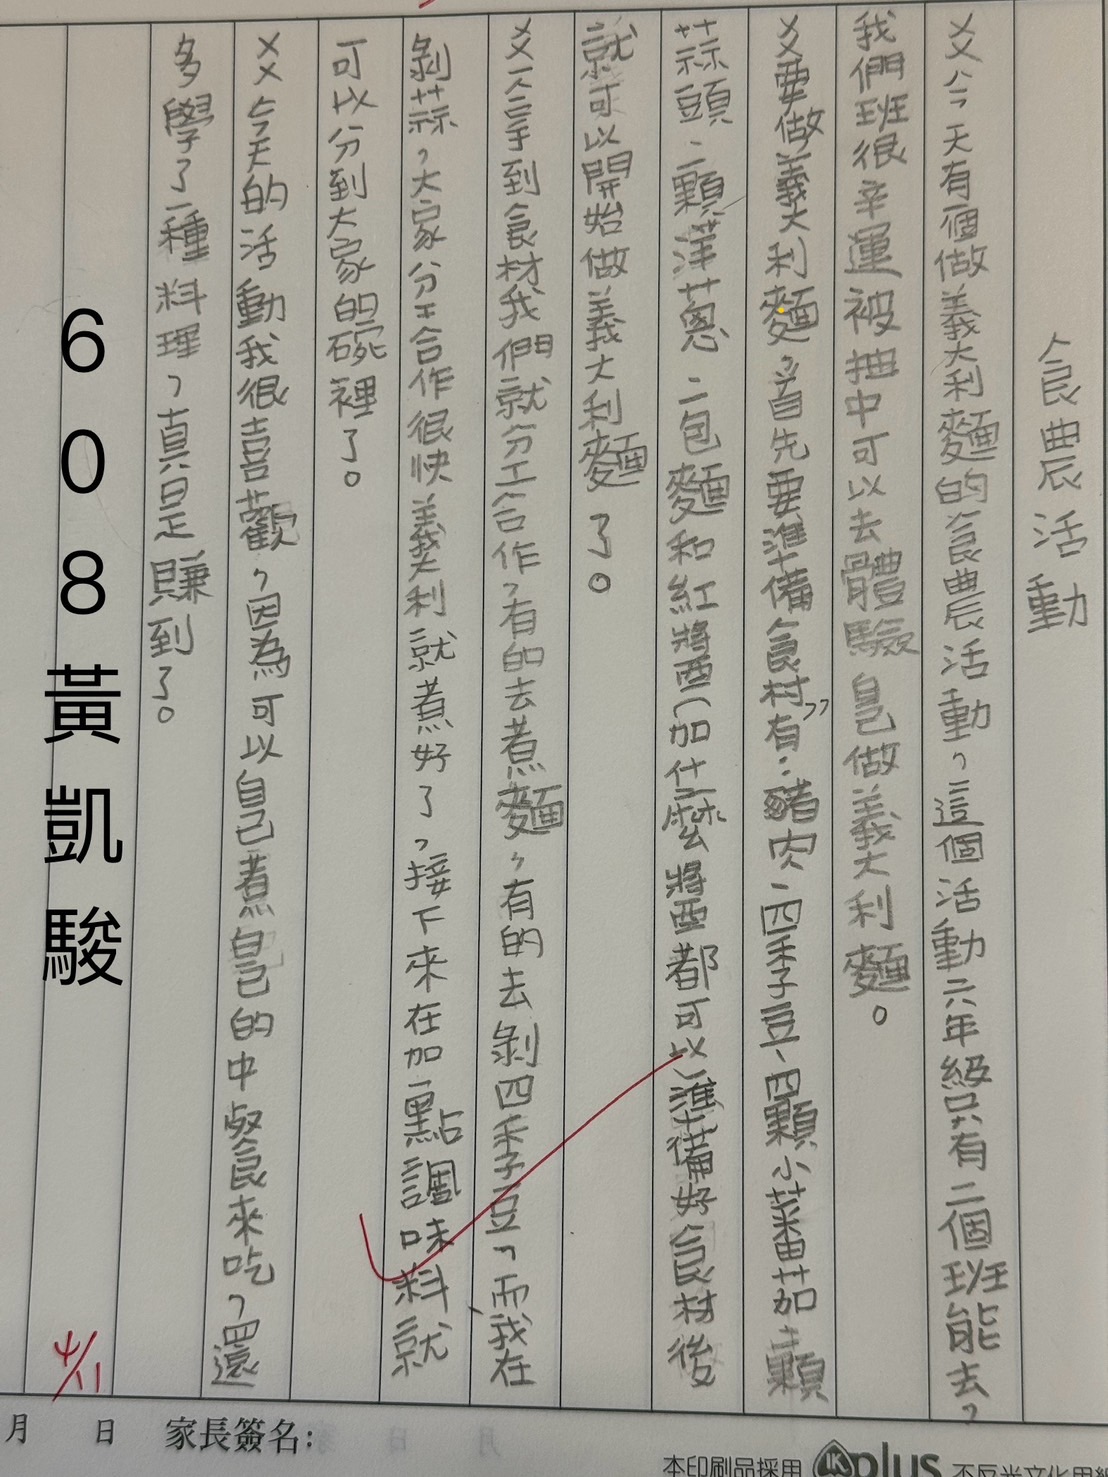 食農活動
今天有個做義大利麵的食農活動,這個活動六年級只有二個班能去,
我們班很幸運被抽中可以去體驗自己做義大利麵。
要做義大利麵,首先要準備食材,有:豬肉、四季豆、四顆小蕃茄、二顆
蒜頭、二顆洋蔥、二包麵和紅將(加什麼將都可以)準備好食材後
就可以開始做義大利麵了。
一拿到食材我們就分工合作,有的去煮麵,有的去剝四季豆,而我在
剝蒜,大家分工合作很快義大利就煮好了,接下來在加一點調味料就
可以分到大家的碗裡了。
今天的活動我很喜歡,因為可以自己煮自己的中餐來吃,還
多學了一種料理,真是賺到了。
608黃凱駿
4/11
月 日 家長簽名:
本印刷品採用 plus